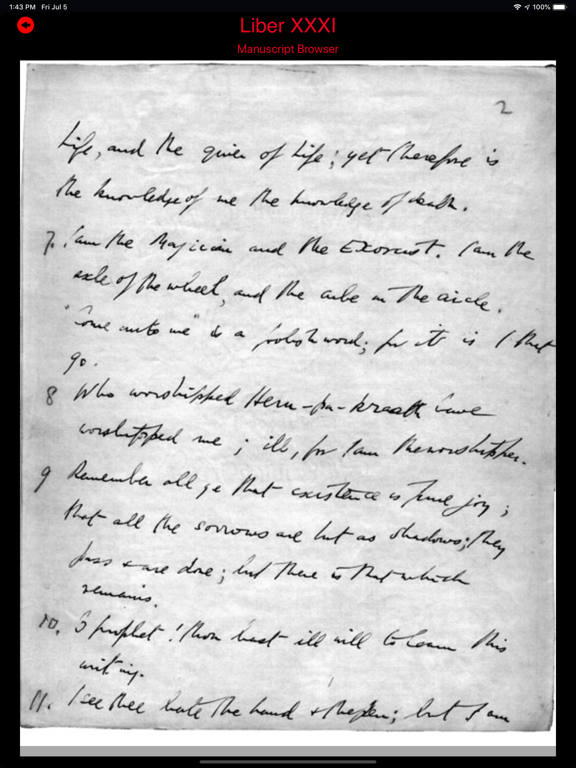 1:43 PM Fri Jul 5 100%
Liber XXXI
Manuscript Browser
2
Life, and the giver of Life; yet therefore is
the knowledge of me the knowledge of death.
7. I am the Magician and the Exorcist. I am the
axle of the wheel, and the cube in the circle.
"Come unto me" is a foolish word; for it is I that
go.
8 Who worshipped Heru-pa-kraath have
worshipped me; ill, for I am the worshipper.
9 Remember all ye that existence is pure joy;
that all the sorrows are but as shadows; they
pass & are done; but there is that which
remains.
10. O prophet! thou hast ill will to learn this
writing.
11. I see thee hate the hand & the pen; but I am